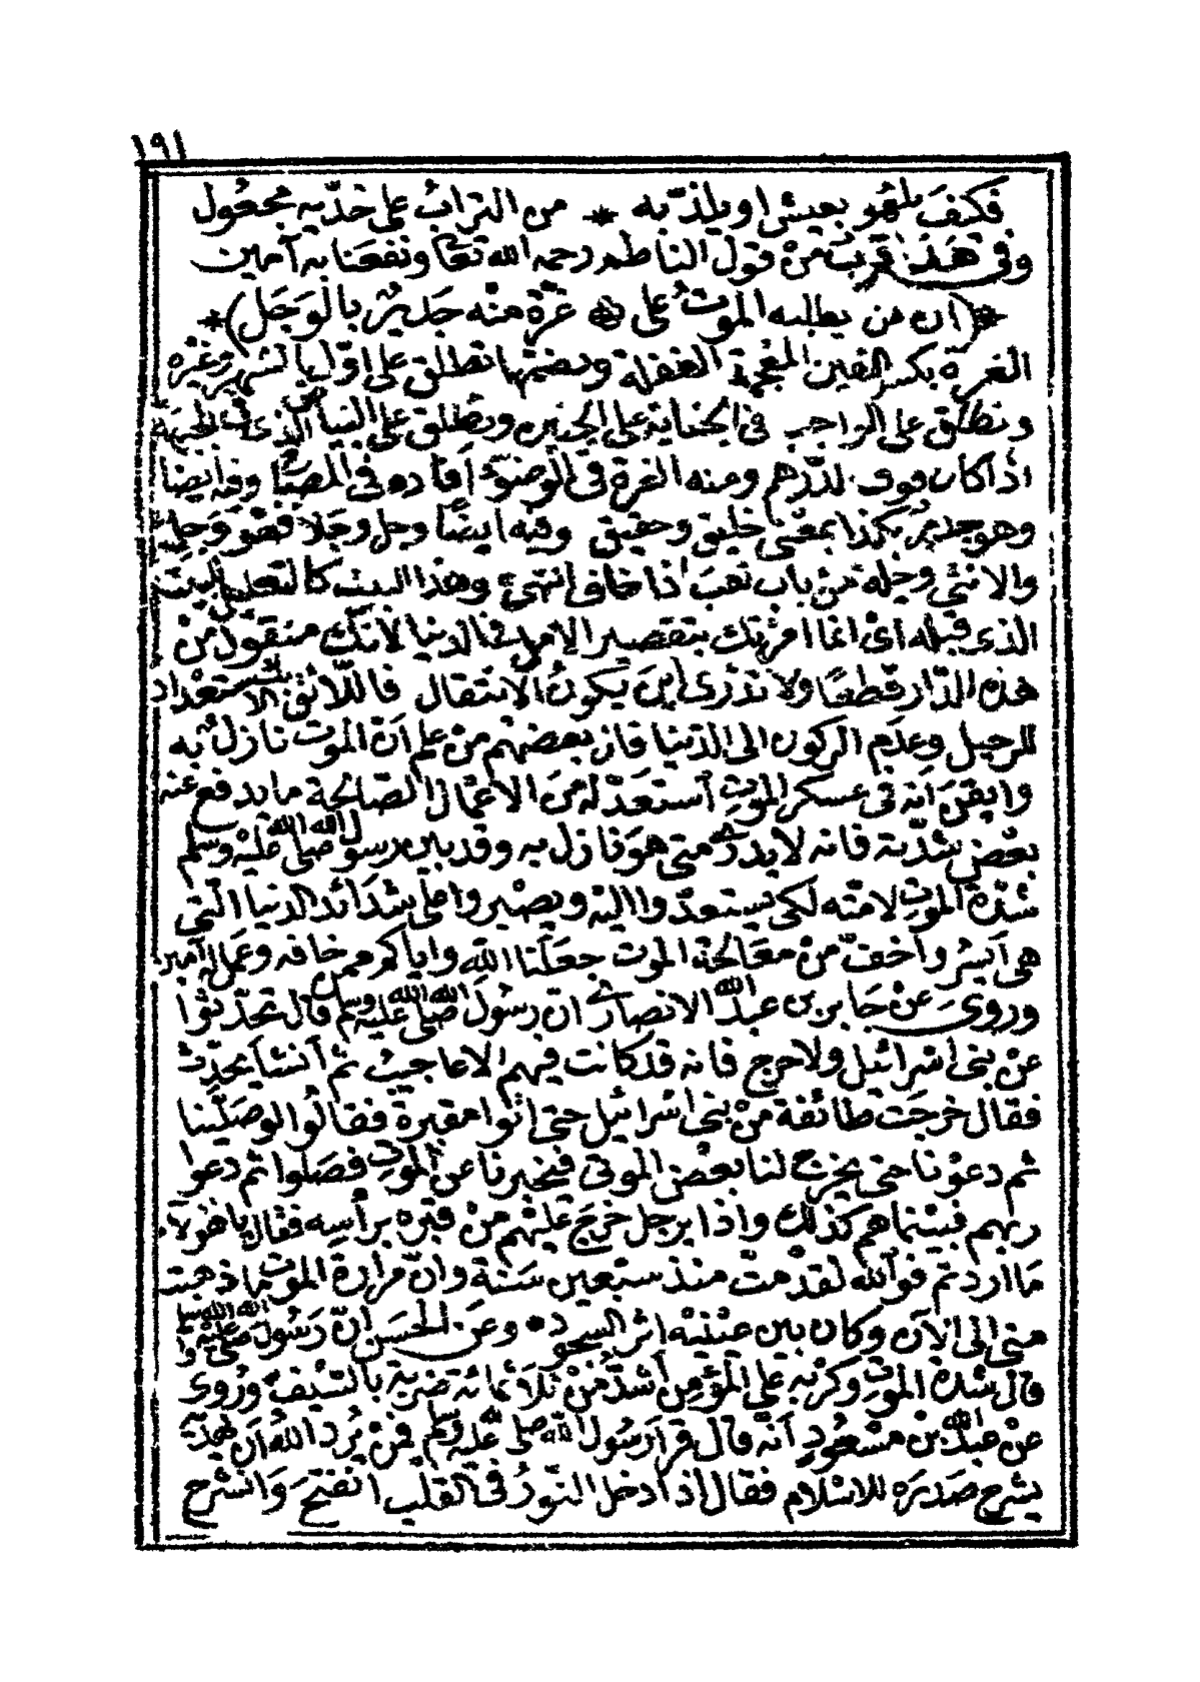 ١٩١
فكيف يلهو بعيش او يلذّ به * من التراب على خدّيه مجعول
وفى هَذا قربَ منْ قول الناظم رحمه الله تعا ونفعَنا به آمين
*(ان من يطلبه الموتُ على * غرّة منْه جَديرٌ بالوَجَل)*
الغرة بكسر الغين المعجمة الغفلة وبضمّها تطلق على اوّل الشهر وغيره
وتطلق على الواجب فى الجناية على الجنين وتطلق على البياض الذى فى الجبهة
اذا كان فوق الدّرهم ومنه الغرة فى الوضوْء أفاده فى المصباح وفيه ايضا
وهو جدير بكذا بمعْنى خليق وحقيق وفيه ايضًا وجل وجَلا فهوَ وَجِل
والانثى وجلة منْ باب تعبَ اذا خاف انتهىَ وهذا البيت كالتعليل للبيت
الذى قبله أىْ انما امرْتك بتقصير الامل فى الدنيا لأنّك منقول منْ
هذه الدّار قطعًا ولا تدْرى اينَ يكونُ الانتقال فاللّائق بك الاستعْداد
للرحيل وعدَم الركون الى الدّنيا فان بعضهم منْ علم اَنّ الموت نازل به
وايقنَ اَنه فى عسكر الموت اَستعَدّ لَه منَ الاعمال الصّالحة ما يدفع عنه
بعْض شدّته فانه لا يدرى متى هوَ نازل به وقد بين رسول الله صلى الله عليْه وسلم
شدّة الموت لامّته لكى يستعدّوا اليْه ويصْبروا على شدَائد الدنيا التى
هى اَيسَرُ وأخفّ منْ معَالجة الموت جعَلَنا الله واياكم ممن خافه وعَمل له آمين
وروىَ عنْ جَابر بن عبدالله الانصارى انّ رسُولَ الله صلى الله عليْه وسلم قال تحَدّثوا
عنْ بنى اسْرائيل ولا حرج فانه قد كانت فيهم الاعاجيبُ ثم اَنشأ يحدّث
فقال خرجَت طائفة منْ بنى اسْرائيل حتى اتوا مقبرة فقالُوا لو صَلّينا
ثم دعوْنا حتى يخرج لنا بعْض الموتى فيخبرنا عن الموت فصَلوا ثم دعوا
ربهم فبيْنما هم كذلك واذا برجل خرَجَ عليْهم منْ قبْره برأسِه فقال يا هَؤلاء
مَا اردتم فو اَلله لقدْ متّ منذ سبْعين سَنة وانّ مرارة الموت ما ذهبت
منى الى الآن وكان بين عيْنيْه اثر السجود * وعَن الحسَن انّ رَسُول الله صلى الله عليْه وسلم
قال شدة الموت وكرْبه على المؤمِن أشدّ منْ ثلاثمائة ضَربة بالسّيْف وَرُوى
عنْ عبدالله بن مسْعودٍ اَنّه قال قرأ رَسُول الله صلى الله عليْه وسلم فمنْ يُرد اللهُ أنَ يهْديَهُ
يشرح صَدرَه للاسْلام فقال اذا دَخل النّورُ فى القلب انفتحَ وَانشرح